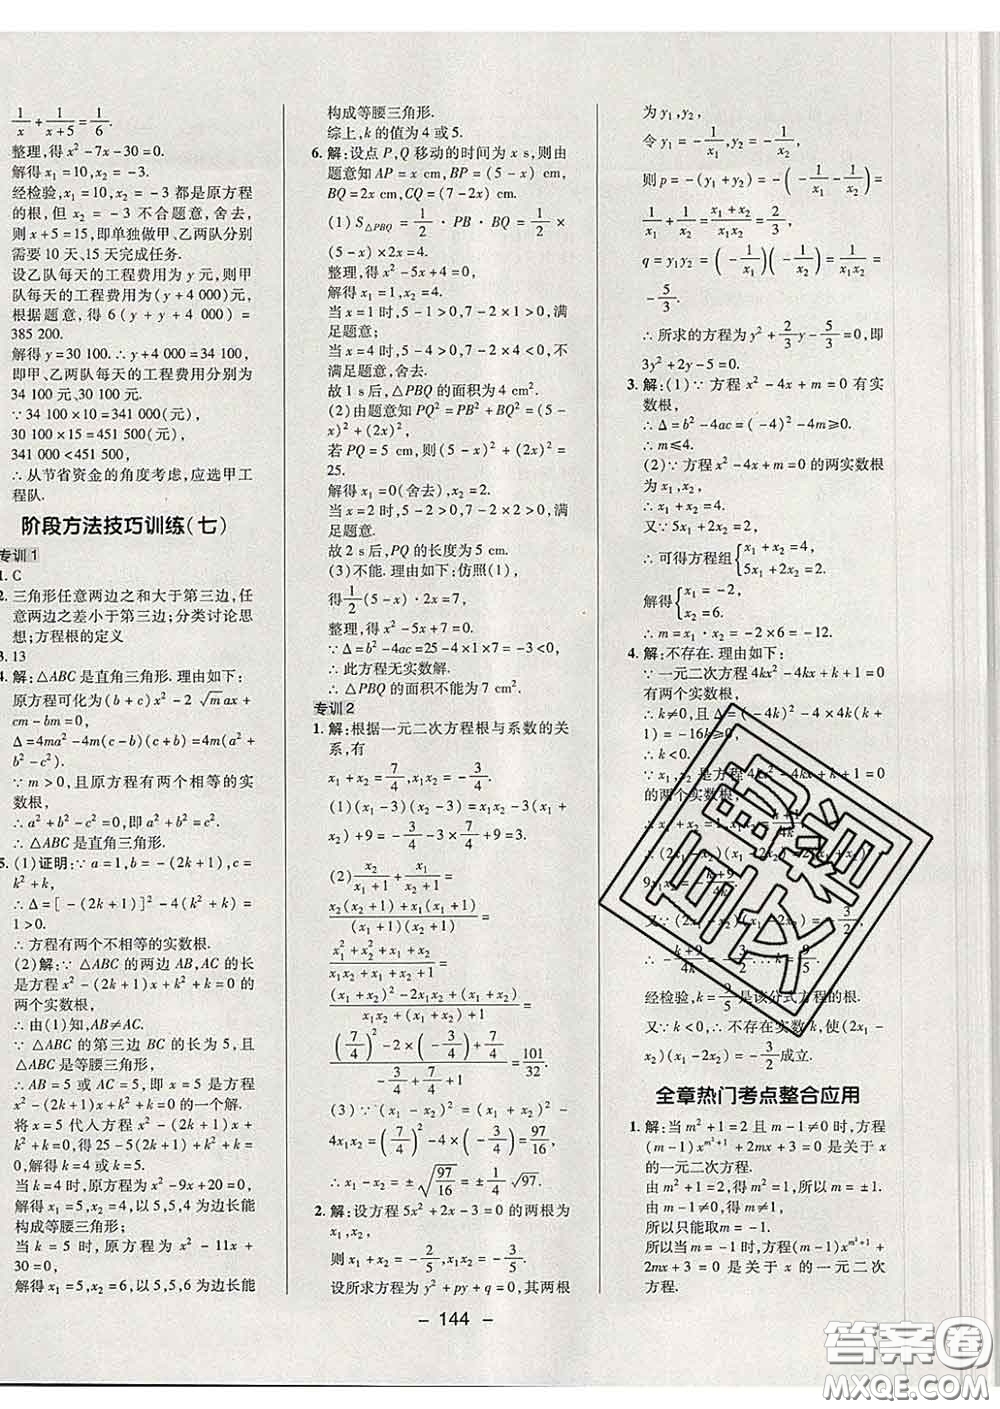 1/x + 1/(x+5) = 1/6.
整理,得 x²-7x-30=0.
解得 x₁=10,x₂=-3.
经检验,x₁=10,x₂=-3 都是原方程
的根,但 x₂=-3 不合题意,舍去,
则 x+5=15,即单独做甲、乙两队分别
需要 10 天、15 天完成任务.
设乙队每天的工程费用为 y 元,则甲
队每天的工程费用为(y+4 000)元,
根据题意,得 6(y+y+4 000)=
385 200.
解得 y=30 100.∴y+4 000=34 100,
即甲、乙两队每天的工程费用分别为
34 100 元、30 100 元.
∵34 100×10=341 000(元),
30 100×15=451 500(元),
341 000<451 500,
∴从节省资金的角度考虑,应选甲工
程队.
阶段方法技巧训练(七)
专训1
1. C
2. 三角形任意两边之和大于第三边,任
意两边之差小于第三边;分类讨论思
想;方程根的定义
3. 13
4. 解:△ABC是直角三角形.理由如下:
原方程可化为(b+c)x²-2√m ax+
cm-bm=0,
Δ=4ma²-4m(c-b)(c+b)=4m(a²+
b²-c²).
∵m>0,且原方程有两个相等的实
数根,
∴a²+b²-c²=0,即a²+b²=c².
∴△ABC是直角三角形.
5. (1)证明:∵a=1,b=-(2k+1),c=
k²+k,
∴Δ=[-(2k+1)]²-4(k²+k)=
1>0.
∴方程有两个不相等的实数根.
(2)解:∵△ABC的两边AB,AC的长
是方程x²-(2k+1)x+k²+k=0的
两个实数根,
∴由(1)知,AB≠AC.
∵△ABC的第三边BC的长为5,且
△ABC是等腰三角形,
∴AB=5或AC=5,即x=5是方程
x²-(2k+1)x+k²+k=0的一个解.
将x=5代入方程x²-(2k+1)x+
k²+k=0,得25-5(2k+1)+k²+k=
0,解得k=4或k=5.
当k=4时,原方程为x²-9x+20=0,
解得x₁=5,x₂=4,以5,5,4为边长能
构成等腰三角形;
当k=5时,原方程为x²-11x+
30=0,
解得x₁=5,x₂=6,以5,5,6为边长能
构成等腰三角形.
综上,k的值为4或5.
6. 解:设点P,Q移动的时间为x s,则由
题意知AP=x cm,PB=(5-x)cm,
BQ=2x cm,CQ=(7-2x)cm.
(1)S△PBQ=1/2·PB·BQ=1/2×
(5-x)·2x=4.
整理,得x²-5x+4=0.
解得x₁=1,x₂=4.
当x=1时,5-1>0,7-2×1>0,满
足题意;
当x=4时,5-4>0,7-2×4<0,不
满足题意,舍去.
故1 s后,△PBQ的面积为4 cm².
(2)由题意知PQ²=PB²+BQ²=(5-
x)²+(2x)²,
若PQ=5 cm,则(5-x)²+(2x)²=
25.
解得x₁=0(舍去),x₂=2.
当x=2时,5-2>0,7-2×2>0,满
足题意.
故2 s后,PQ的长度为5 cm.
(3)不能.理由如下:仿照(1),
得1/2(5-x)·2x=7.
整理,得x²-5x+7=0.
∵Δ=b²-4ac=25-4×1×7=-3<0,
∴此方程无实数解.
∴△PBQ的面积不能为7 cm².
专训2
1. 解:根据一元二次方程根与系数的关
系,有
x₁+x₂=7/4,x₁x₂=-3/4.
(1)(x₁-3)(x₂-3)=x₁x₂-3(x₁+
x₂)+9=-3/4-3×7/4+9=3.
(2)x₂/(x₁+1)+x₁/(x₂+1)=
[x₂(x₂+1)+x₁(x₁+1)]/[(x₁+1)(x₂+1)]=
(x₁²+x₂²+x₁+x₂)/(x₁x₂+x₁+x₂+1)=
[(x₁+x₂)²-2x₁x₂+(x₁+x₂)]/[x₁x₂+(x₁+x₂)+1]=
[(7/4)²-2×(-3/4)+7/4]/[-3/4+7/4+1]=101/32.
(3)∵(x₁-x₂)²=(x₁+x₂)²-
4x₁x₂=(7/4)²-4×(-3/4)=97/16,
∴x₁-x₂=±√(97/16)=±1/4√97.
2. 解:设方程5x²+2x-3=0的两根为
x₁,x₂,
则x₁+x₂=-2/5,x₁x₂=-3/5.
设所求方程为y²+py+q=0,其两根
为y₁,y₂,
令y₁=-1/x₁,y₂=-1/x₂,
则p=-(y₁+y₂)=-(-1/x₁-1/x₂)=
1/x₁+1/x₂=(x₁+x₂)/(x₁x₂)=2/3,
q=y₁y₂=(-1/x₁)(-1/x₂)=1/(x₁x₂)=
-5/3.
∴所求的方程为y²+2/3y-5/3=0,即
3y²+2y-5=0.
3. 解:(1)∵方程x²-4x+m=0有实
数根,
∴Δ=b²-4ac=(-4)²-4m≥0.
∴m≤4.
(2)∵方程x²-4x+m=0的两实数根
为x₁,x₂,
∴x₁+x₂=4.
又∵5x₁+2x₂=2,
∴可得方程组{x₁+x₂=4,
5x₁+2x₂=2.
解得{x₁=-2,
x₂=6.
∴m=x₁·x₂=-2×6=-12.
4. 解:不存在.理由如下:
∵一元二次方程4kx²-4kx+k+1=0
有两个实数根,
∴k≠0,且Δ=(-4k)²-4×4k(k+
1)=-16k≥0.
∴k<0.
∵x₁,x₂是方程4kx²-4kx+k+1=0
的两个实数根,
∴x₁+x₂=1,x₁x₂=(k+1)/4k.
∴(2x₁-x₂)(x₁-2x₂)=2(x₁+x₂)²-
9x₁x₂=-(k+9)/4k.
又∵(2x₁-x₂)(x₁-2x₂)=-3/2,
∴-(k+9)/4k=-3/2.∴k=9/5.
经检验,k=9/5是该分式方程的根.
又∵k<0,∴不存在实数k,使(2x₁-
x₂)(x₁-2x₂)=-3/2成立.
全章热门考点整合应用
1. 解:当m²+1=2且m-1≠0时,方程
(m-1)x^(m²+1)+2mx+3=0是关于x
的一元二次方程.
由m²+1=2,得m²=1,所以m=±1.
由m-1≠0,得m≠1,
所以只能取m=-1.
所以当m=-1时,方程(m-1)x^(m²+1)+
2mx+3=0是关于x的一元二次
方程.
- 144 -
答案圈
MXQE.COM